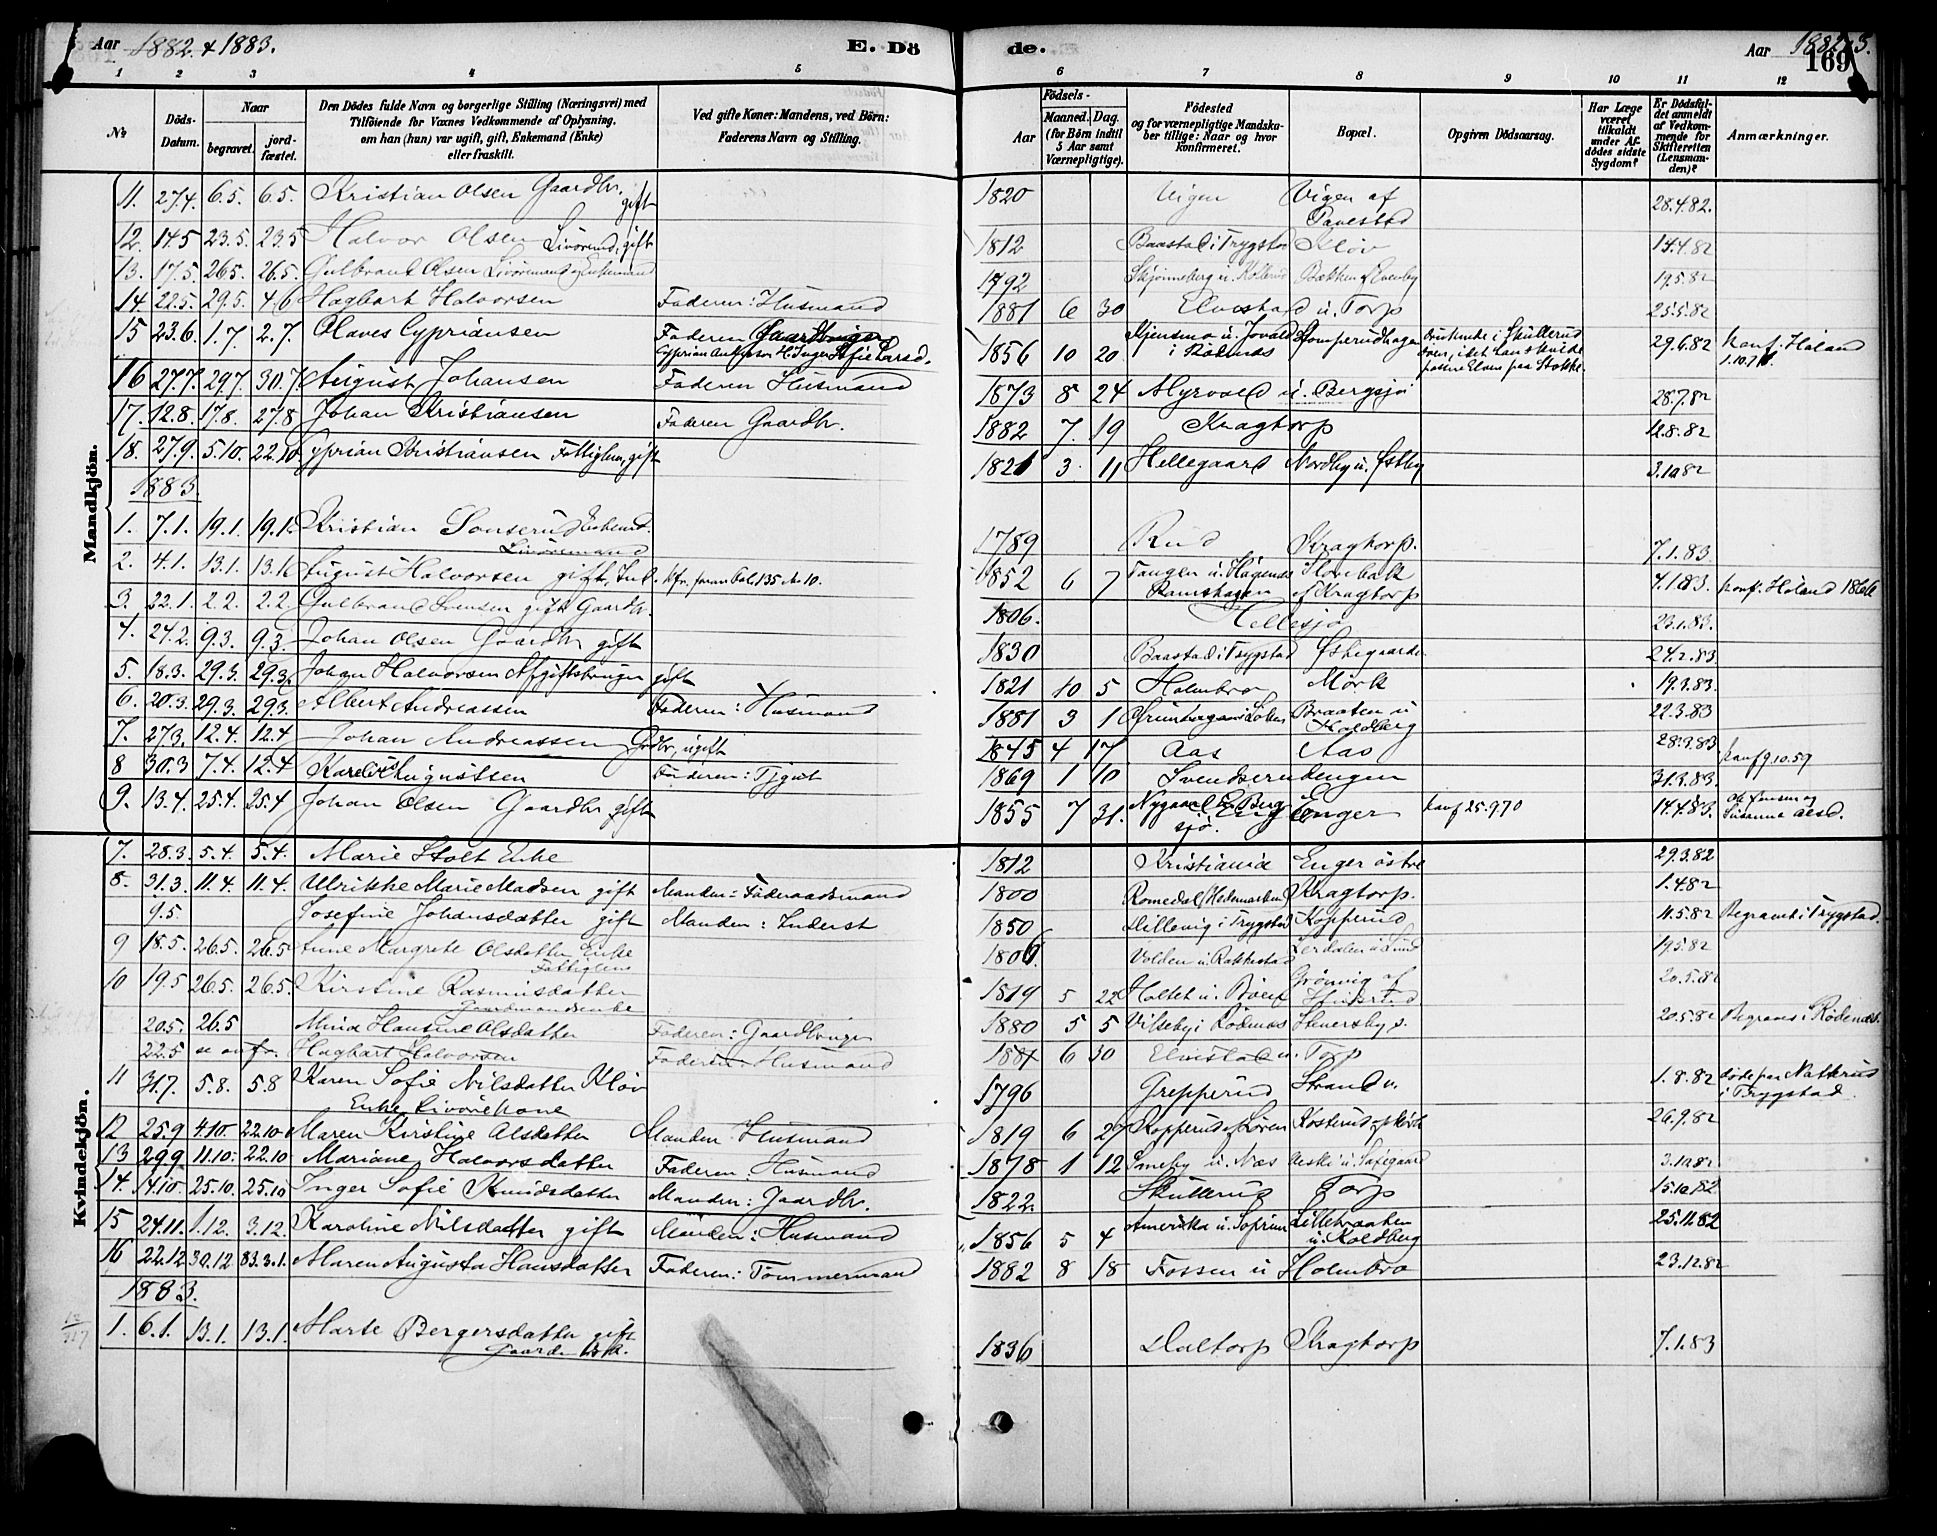 Aar 1882 & 1883. E. Dö de. Aar 1882/3. 169
1 2 3 4 5 6 7 8 9 10 11 12
No Döds-Datum. Naar begravet. jord-fæstet. Den Dödes fulde Navn og borgerlige Stilling (Næringsvei) med Tilföiende for Voxnes Vedkommende af Oplysning, om han (hun) var ugift, gift, Enkemand (Enke) eller fraskilt. Ved gifte Koner: Mandens, ved Börn: Faderens Navn og Stilling. Födsels- Aar Maaned. Dag. (for Börn indtil 5 Aar samt Værnepligtige). Födested og for værnepligtige Mandskaber tillige: Naar og hvor Konfirmeret. Bopæl. Opgiven Dödsaarsag. Har Læge været tilkaldt under Afdödes sidste Sygdom? Er Dödsfaldet anmeldt af Vedkommende for Skifteretten (Lensmanden)? Anmærkninger.
Mandkjön.
11. 27.4. 6.5. 6.5. Kristian Olsen Gaardbr. gift 1820 Vigen Vigen af 28.4.82.
12. 14.5 23.5. 23.5 Halvor Olsen gift 1812 Baastad i Trygstad Kløv 14.4.82
13. 17.5. 26.5. 26.5. Gulbrand Olsen Enkemand 1792 19.5.82
14 22.5. 29.5. 4.6 Hagbart Halvorsen Faderen: Husmand 1881 6 30 Elvestad u. Torp 25.5.82
15 23.6. 1.7. 2.7. Olaves Cypriansen Faderen Gaardbruger 1856 10 20 i Rödenæs 29.6.82 konf. Höland
16 27.7. 29.7. 30.7 August Johansen Faderen Husmand 1873 8 24 Myrvold u. Bergsjö 28.7.82
17. 12.8. 17.8. 27.8 Johan Kristiansen Faderen Gaardbr. 1882 7. 19 Kragtorp 12.8.82
18. 27.9. 5.10. 22.10 Cyprian Kristiansen Fattiglem, gift 1821 3. 11 Hellegaard Nordby u. Östby 3.10.82
1883.
1. 7.1. 19.1. 19.1. Kristian Enkemd. 1789 Rud Kragtorp. 7.1.83
2. 4.1. 13.1. 13.1. August Halvorsen gift, Ind. kfr. foran fol. 135 No 10. 1852 6 7 Tangen u. Hagenæs Kragtorp 4.1.83. konf. Höland 1866
3. 22.1. 2.2. 2.2. Gulbrand Svensen gift Gaardbr. 1806. Hellesjö 23.1.83.
4. 24.2. 9.3. 9.3. Johan Olsen Gaardbr gift 1830 Baastad i Trygstad 24.2.83
5. 18.3. 29.3. 29.3. Johan Halvorsen Afgiftsbruger gift 1821 10 5 Holmbro Mörk 19.3.83.
6. 20.3. 29.3. 29.3. Albert Andreassen Faderen: Husmand 1881 3 1 Braaten u Koldberg 22.3.83
7. 27.3. 12.4. 12.4 Johan Andreassen Grdbr, ugift 1845 4 17 Aas Aas 28.3.83 konf 9.10.59
8 30.3 7.4. 12.4 Karelius Augustsen Faderen: Tjgut 1869 1 10 Svendserudengen 31.3.83.
9. 13.4. 25.4. 25.4 Johan Olsen Gaardbr gift 1855 7 31. Nygaard Bergsjö. Enger konf 25.9.70 14.4.83.
Kvindekjön.
7. 28.3. 5.4. 5.4. Marie Stolt Enke 1812 Kristiania Enger östre 29.3.82
8. 31.3. 11.4. 11.4. Ulrikke Marie Madsen gift Manden: Föderaadsmand 1800 Romedal (Hedemarken) Kragtorp. 1.4.82
9.5. Josefine Johansdatter gift Manden: Inderst 1850 Dillevig i Trygstad Kopperud 11.5.82 Begravet i Trygstad.
9 18.5. 26.5. 26.5 Anne Margrete Olsdatter Enke Fattiglem 1806. Volden u. Rakkestad 19.5.82
10 19.5 26.5. 26.5. Kirstine Rasmusdatter Gaardmandsenke 1819 5 22 Holtet u. Grönvig af 20.5.82
20.5. 26.5 Mina Hansine Olsdatter Faderen: Gaardbruger 1880 5 5 Vilseby i Rödenæs Stenersby s. 20.5.82 Begraves i Rödenæs.
22.5 se ovfr. Hagbart Halvorsen Faderen: Husmand 1881 6 30 Elvestad u. Torp
11 31.7. 5.8. 5.8 Karen Sofie Nilsdatter Kløv Enke, Livörekone 1796 Grepperud Strand n. 1.8.82 döde paa Natterud i Trygstad
12 25.9 4.10. 22.10 Maren Kirstine Olsdatter Manden Husmand 1819 6 27 Kopperud 26.9.82
13 29.9. 11.10. 22.10 Mariane Halvorsdatter Faderen. Husmand 1878 1 12 Smeby u. Næs 3.10.82
14. 14.10. 25.10. 25.10 Inger Sofie Knudsdatter Manden: Gaardbr. 1822. Skullerud Torp 15.10.82
15 24.11. 1.12. 3.12. Karoline Nilsdatter gift Manden: Husmand 1856 5 4 Amerika u. Lillebraaten u. Koldberg 25.11.82
16 22.12 30.12 83.3.1. Maren Augusta Hansdatter Faderen: Tömmermand 1882 8 18 Fossen u Holmbro 23.12.82
1883.
1. 6.1. 13.1. 13.1. Marte Bergersdatter gift 1836 Daltorp Kragtorp 7.1.83